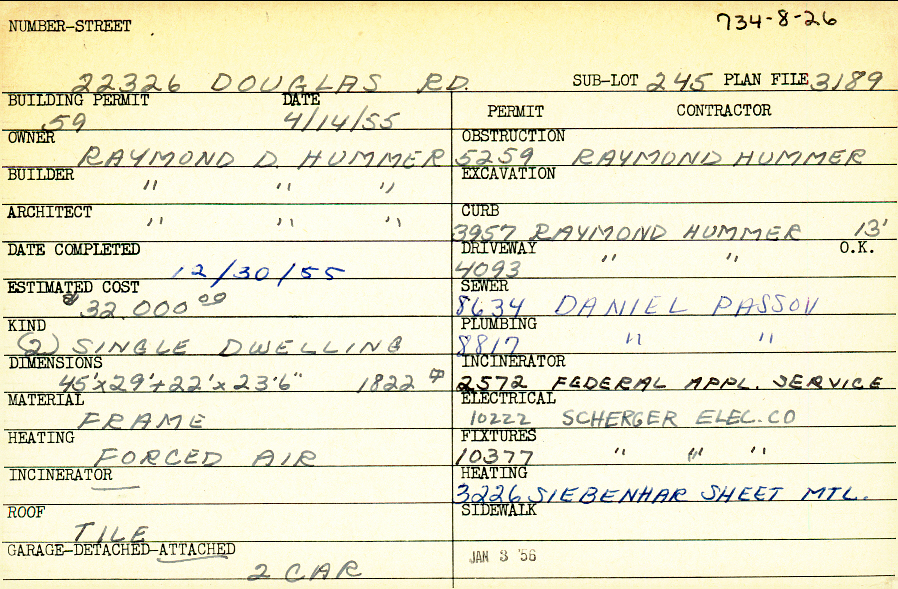 734-8-26
NUMBER-STREET
22326 DOUGLAS RD. SUB-LOT 245 PLAN FILE 3189
BUILDING PERMIT DATE
59 4/14/55
OWNER
RAYMOND D. HUMMER
BUILDER
" " "
ARCHITECT
" " "
DATE COMPLETED
12/30/55
ESTIMATED COST
$32.000.00
KIND
(2) SINGLE DWELLING
DIMENSIONS
45'x29'+22'x23'6" 1822
MATERIAL
FRAME
HEATING
FORCED AIR
INCINERATOR
ROOF
TILE
GARAGE-DETACHED-ATTACHED
2 CAR
PERMIT CONTRACTOR
OBSTRUCTION
5259 RAYMOND HUMMER
EXCAVATION
CURB
3957 RAYMOND HUMMER 13'
DRIVEWAY " " O.K.
4093
SEWER
8634 DANIEL PASSOV
PLUMBING
8817 " "
INCINERATOR
2572 FEDERAL APPL. SERVICE
ELECTRICAL
10222 SCHERGER ELEC. CO
FIXTURES
10377 " " "
HEATING
3226 SIEBENHAR SHEET MTL.
SIDEWALK
JAN 3 '56